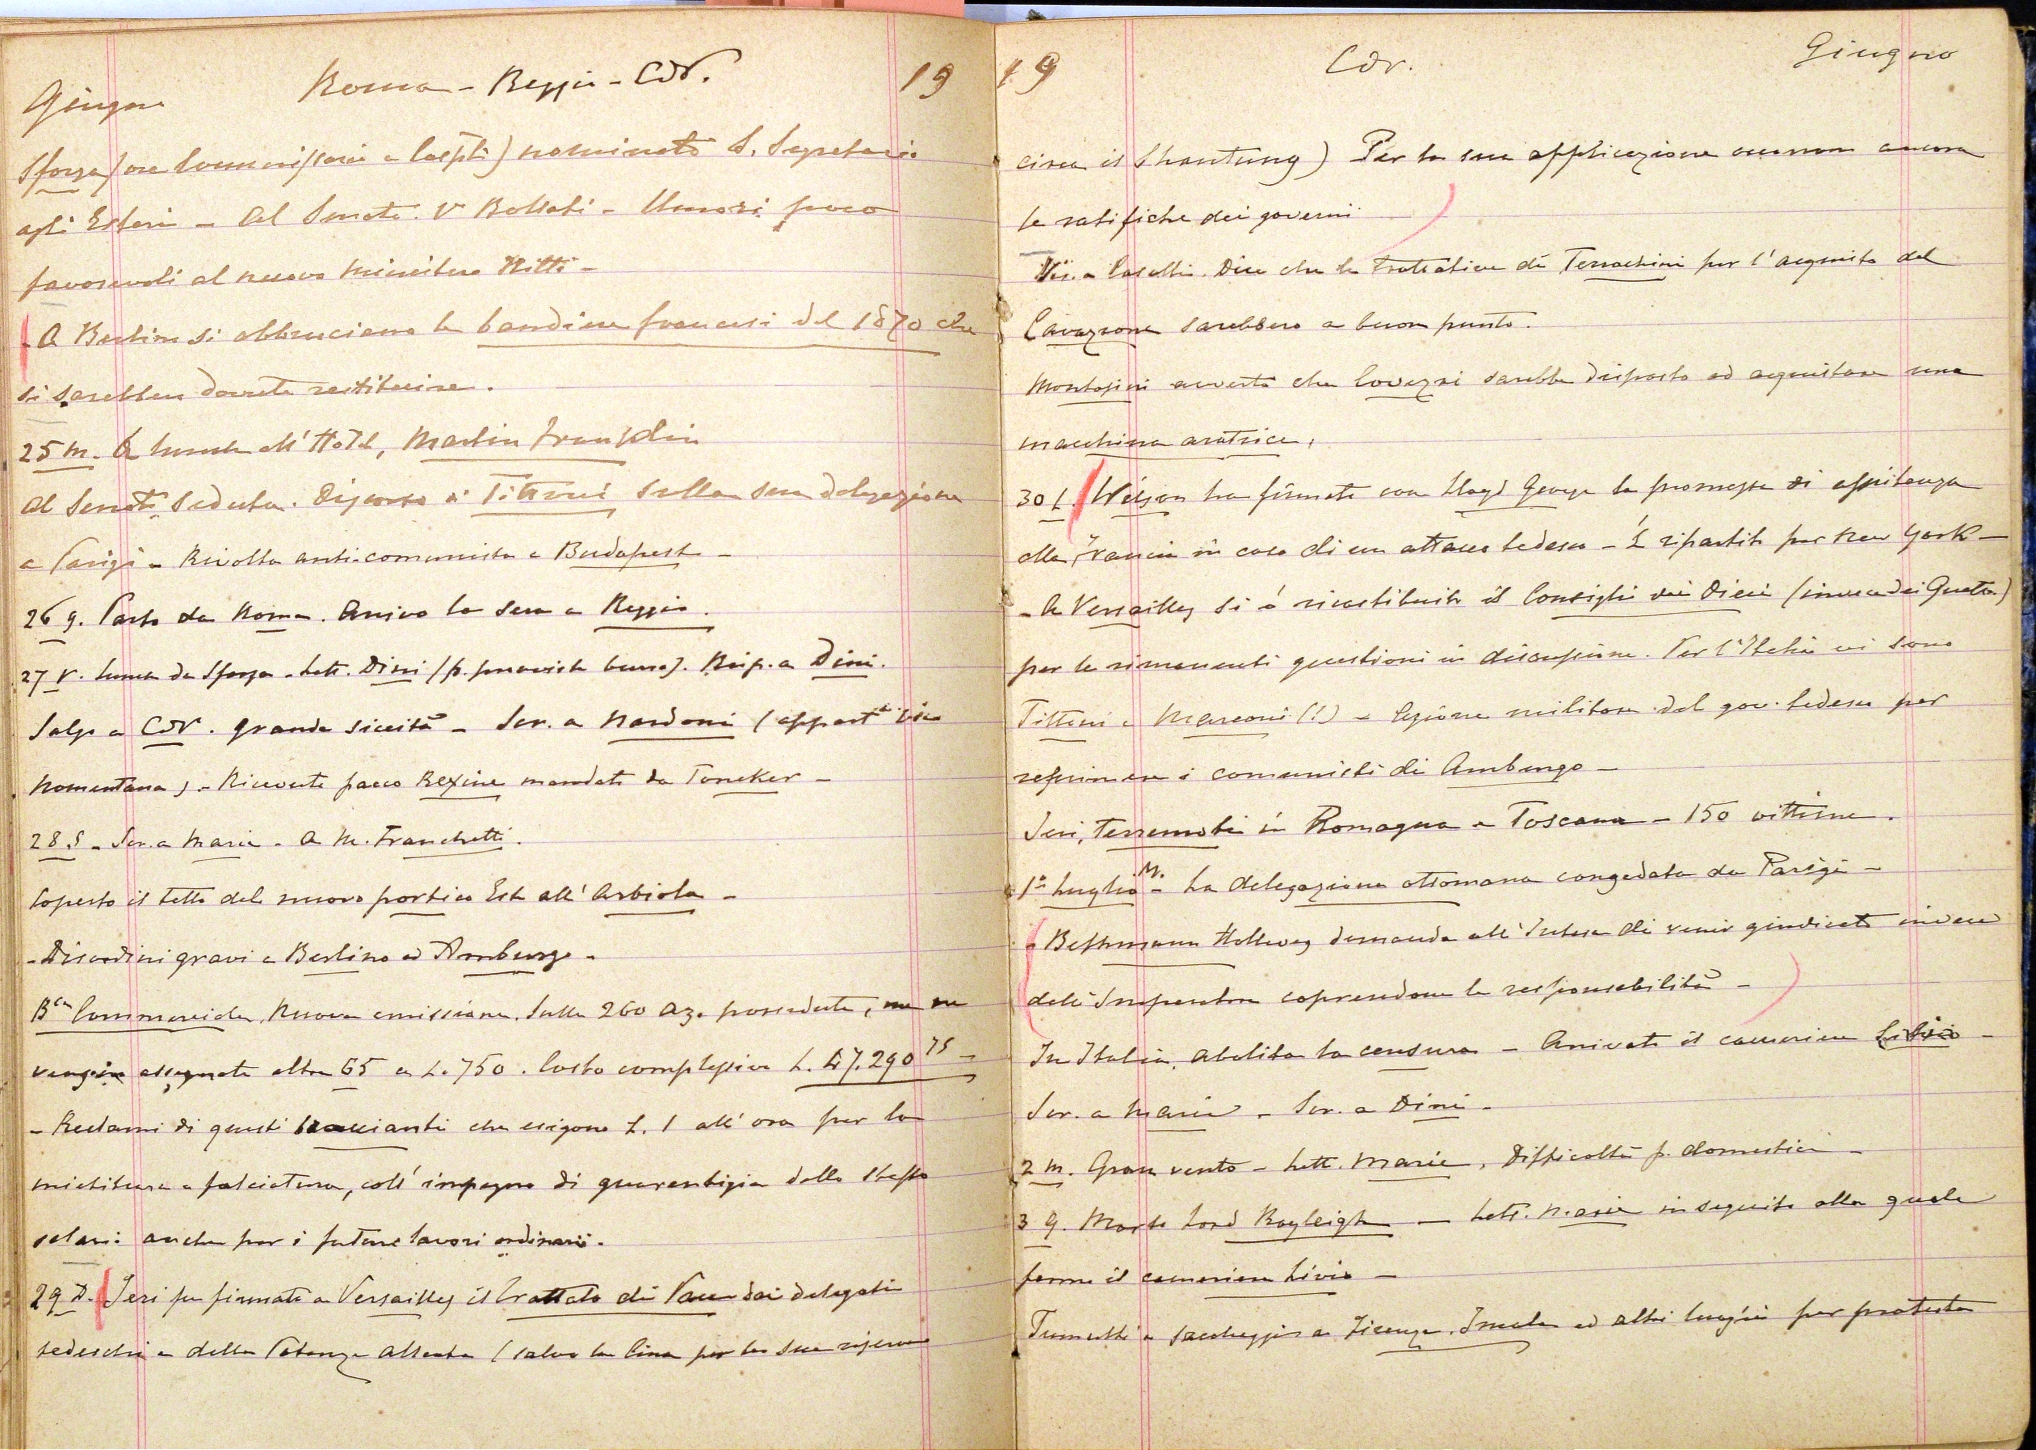 Giugno Roma - Reggio - CdV. 19
Sforza (ora Commissario a Cospli) nominato S. Segretario
agli Esteri - Al Senato. Vº Bollati - Umori poco
favorevoli al nuovo Ministero Nitti -
- A Berlino si abbruciano le bandiere francesi del 1870 che
si sarebbero dovute restituire.
25 M. A lunch all'Hotel, Martin Franklin
Al Senato seduta. Discorso di Tittoni sulla sua delegazione
a Parigi - Rivolta anti-comunista a Budapest -
26 g. Parto da Roma. Arrivo la sera a Reggio.
27 V. Lunch da Sforza - Lett. Dini (p. provvista burro). Risp. a Dini.
Salgo a CdV. grande siccità - Scr. a Nardoni (appartº via
Nomentana). - Ricevuto pacco Rexine mandato da Toneker -
28 S - Scr. a Marie - A M. Franchetti.
Coperto il tetto del nuovo portico Est all'Arbiola -
- Disordini gravi a Berlino ed Amburgo -
Bca Commerciale. Nuova emissione. Sulle 260 az. possedute, me ne
vengon assegnate altre 65 a L. 750. Costo complessivo L. 47.290 75 -
- Reclami di questi braccianti che esigono L. 1 all'ora per la
mietitura e falciatura, coll'impegno di guarentigia dello stesso
salario anche per i futuri lavori ordinarii.
29 D. Jeri fu firmato a Versailles il Trattato di Pace dai delegati
tedeschi e delle Potenze Alleate (salvo la Cina per le sue riserve
19 CdV. Giugno
circa il Shantung) Per la sua applicazione occorron ancora
le ratifiche dei governi
Vis. a Caselli. Dice che le trattative di Terrachini per l'acquisto del
Cavazzone sarebbero a buon punto.
Montosini avverte che Covezzi sarebbe disposto ad acquistare una
macchina aratrice.
30 L. Wilson ha firmato con Lloyd George la promessa di assistenza
alla Francia in caso di un attacco tedesco - È ripartito per New York -
- A Versailles si è ricostituito il Consiglio dei Dieci (invece dei Quattro)
per le rimanenti questioni in discussione. Per l'Italia vi sono
Tittoni e Marconi (!) - Azione militare del gov. tedesco per
reprimere i comunisti di Amburgo -
Jeri, terremoti in Romagna e Toscana - 150 vittime.
1º Luglio M. - La delegazione ottomana congedata da Parigi -
- Bethmann Hollweg domanda all'Intesa di venir giudicato invece
dell'Imperatore coprendone le responsabilità -
In Italia, abolita la censura - Arrivato il cameriere Livio -
Scr. a Marie - Scr. a Dini -
2 M. Gran vento - Lett. Marie. Difficoltà p. domestici -
3 G. Morto Lord Rayleigh - Lett. Marie in seguito alla quale
fermo il cameriere Livio -
Tumulti e saccheggi a Firenze, Imola ed altri luoghi per protesta